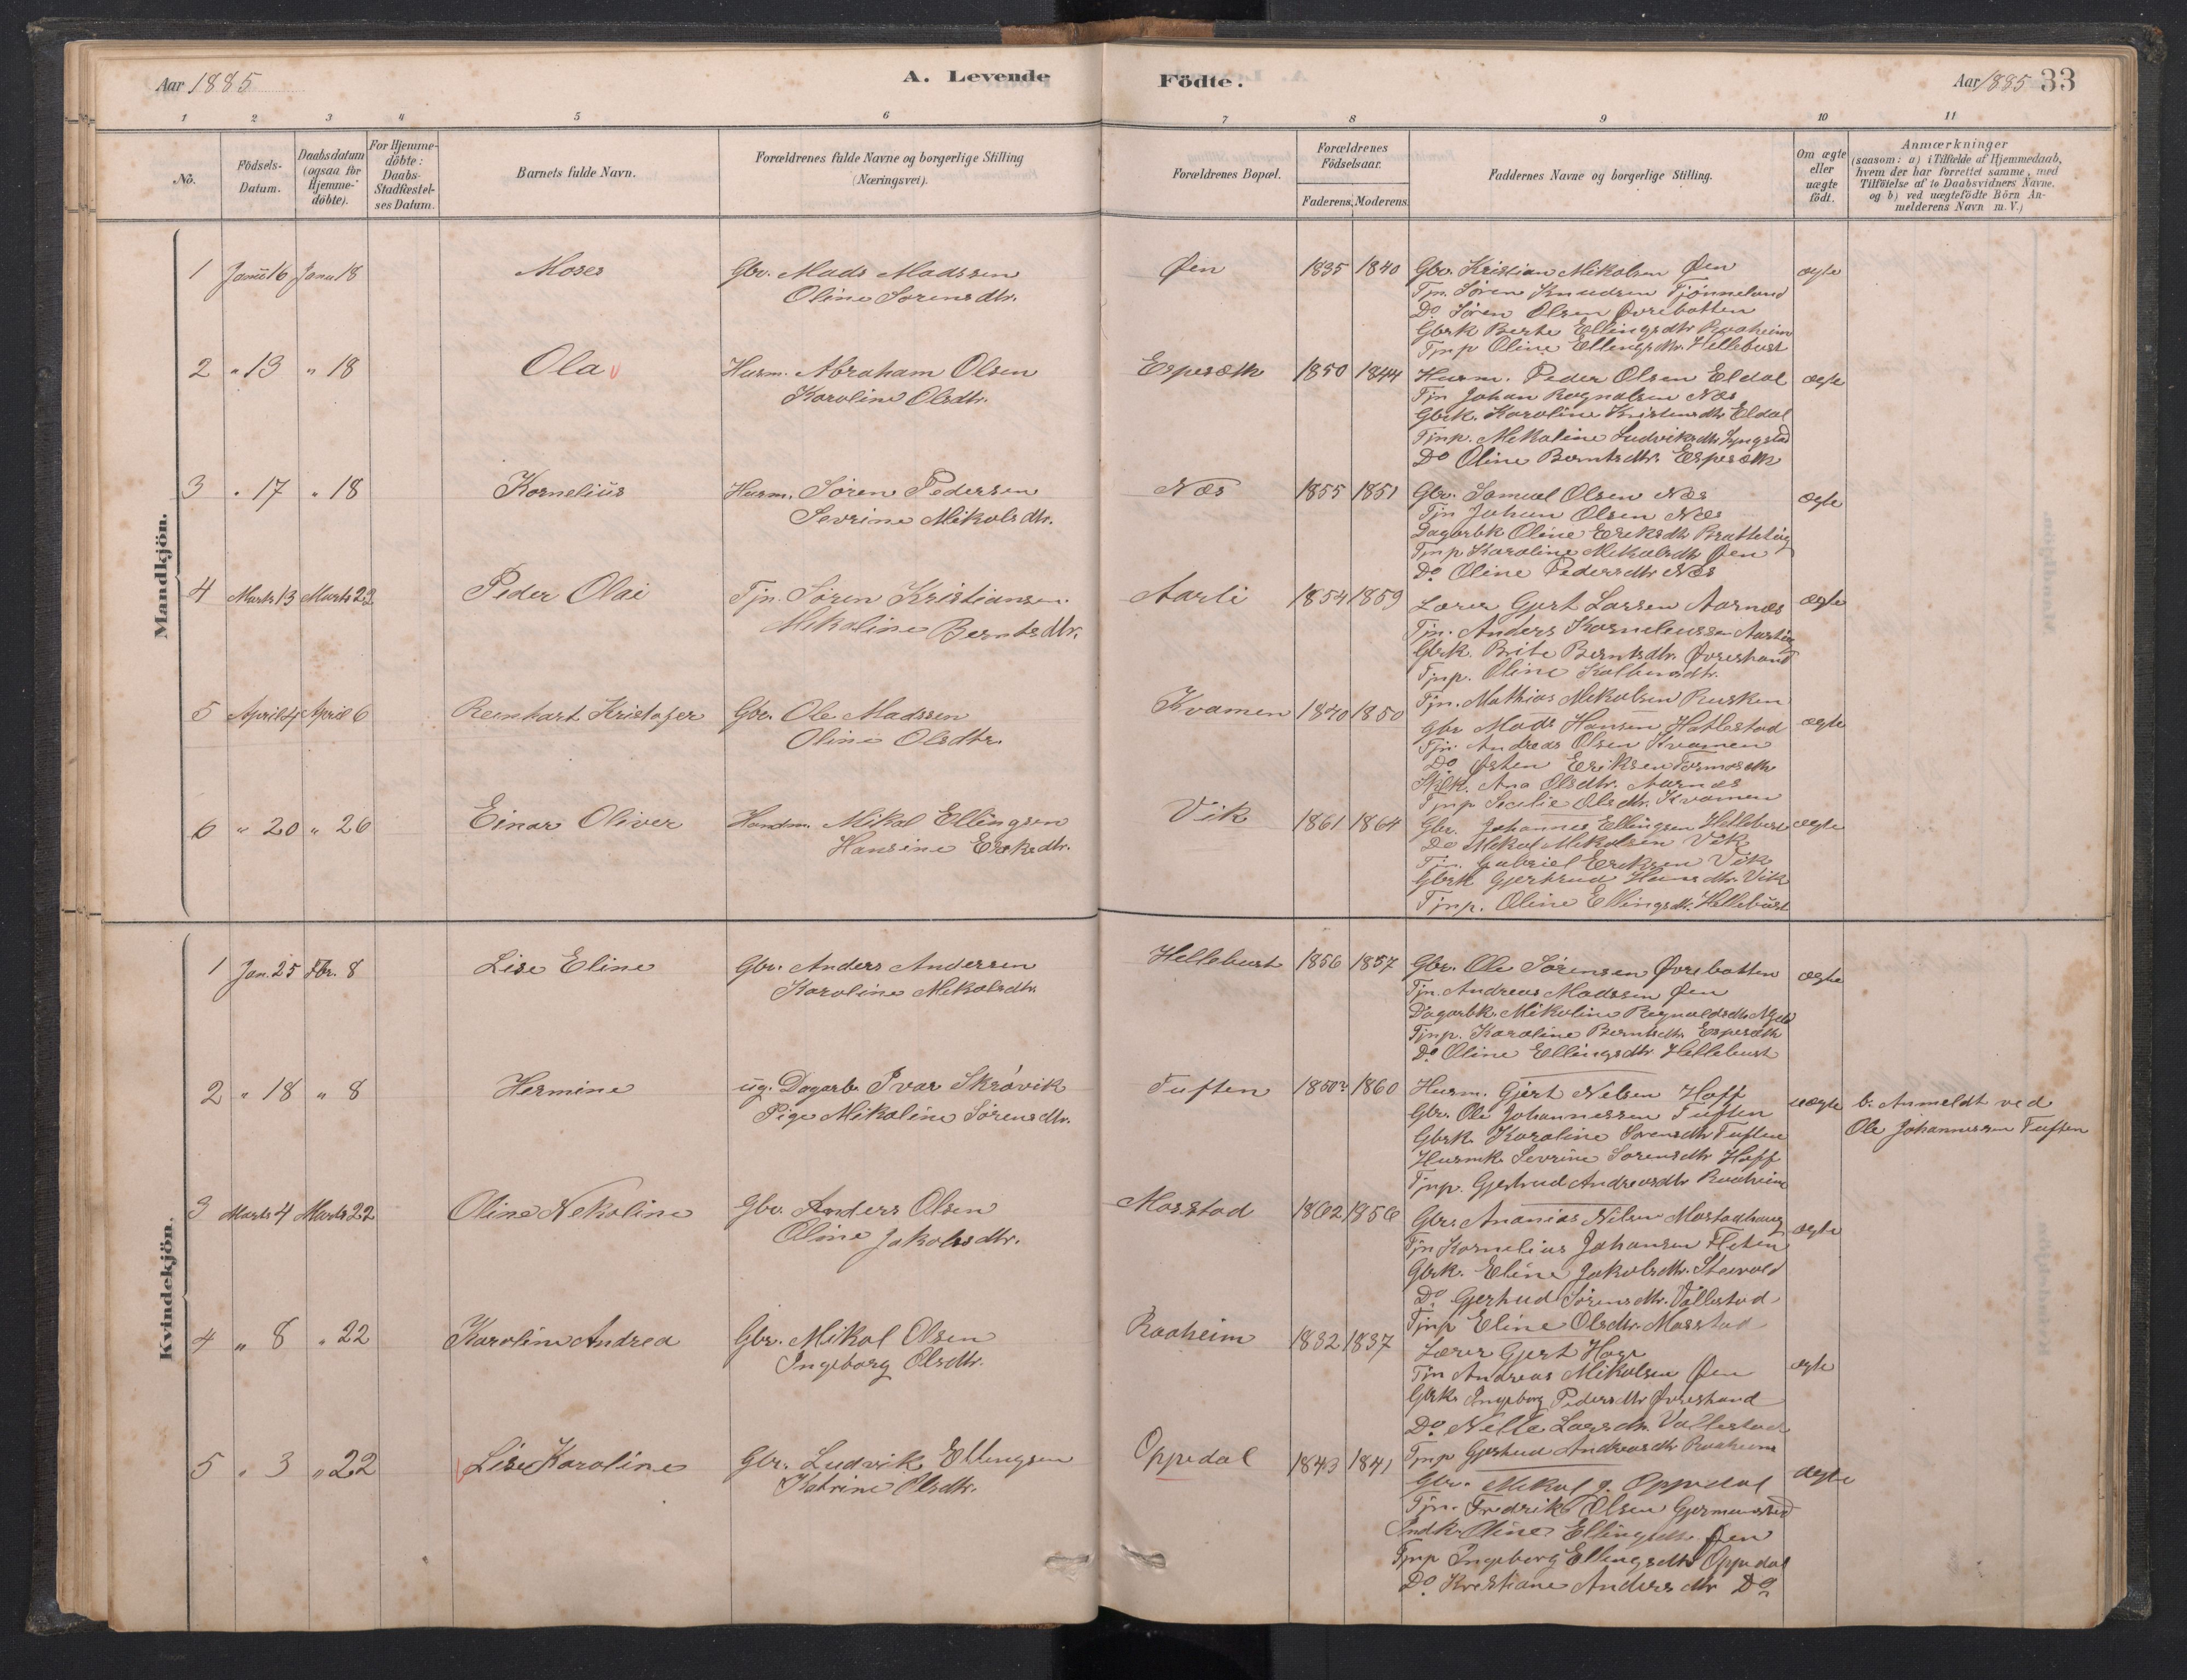 Aar 1885
A. Levende
Födte.
Aar 1885 33
1 2 3 4 5 6 7 8 9 10 11
No.
Födsels-Datum.
Daabsdatum (ogsaa for Hjemme-döbte).
For Hjemme-döbte: Daabs-Stadfæstel-ses Datum.
Barnets fulde Navn.
Forældrenes fulde Navne og borgerlige Stilling (Næringsvei).
Forældrenes Bopæl.
Forældrenes Födselsaar.
Faderens. Moderens.
Faddernes Navne og borgerlige Stilling.
Om ægte eller uægte födt.
Anmærkninger
(saasom: a) i Tilfælde af Hjemmedaab,
hvem der har forrettet samme, med
Tilföielse af to Daabsvidners Navne,
og b) ved uægtefödte Börn An-
melderens Navn m. V.)
Mandkjön.
1 Janu 16 Janu 18 Moses Gbr. Mads Madssen Øen 1835 1840 Gbr. Kristian Mikalsen Øen ægte
Oline Sørensdtr. Tjn. Søren Knudsen Tjønneland
Do Søren Olsen Øvrebotten
Gbrk Berte Ellingsdtr Raaheim
Tjnp Oline Ellingsdtr. Hellebust
2 " 13 " 18 Ola Husm. Abraham Olsen Espesæth 1850 1844 Husm. Peder Olsen Eldal ægte
Karoline Olsdtr. Tjn Johan Rognalsen Næs
Gbrk. Karoline Kristensdtr Eldal
Tjnp. Mikaline Ludviksdtr
Do Oline Berntsdtr. Espesæth
3 " 17 " 18 Kornelius Husm. Søren Pedersen Næs 1855 1851 Gbr. Samuel Olsen Næs ægte
Sevrine Mikalsdtr. Tjn Johan Olsen Næs
Dagarbk Oline Eriksdtr
Tjnp Karoline Mikalsdtr Øen
Do Oline Pedersdtr Næs
4 Marts 13 Marts 22 Peder Olai Tjn. Søren Kristiansen Aarli 1854 1859 Lærer Gjert Larsen Aarnæs ægte
Mikaline Berntsdtr. Tjn. Anders Korneliussen
Gbrk. Brite Berntsdtr. Øvrestrand
Tjnp. Oline
5 April 4 April 6 Reinhart Kristofer Gbr. Ole Madssen Kvamen 1840 1850 Tjn. Mathias Mikalsen Rusken ægte
Oline Olsdtr. Gbr Mads Hansen Hatlestad
Tjn. Andreas Olsen Kvamen
Do Østen Eriksen
Ana Olsdtr. Aarnæs
Tjnp Sicilie Olsdtr. Kvamen
6 " 20 " 26 Einar Oliver Handm. Mikal Ellingsen Vik 1861 1864 Gbr. Johannes Ellingsen Hellebust ægte
Hansine Eriksdtr. Do Mikal Mikalsen Vik
Tjn. Gabriel Eriksen Vik
Gbrk Gjertrud Hansdtr. Vik
Tjnp. Oline Ellingsdtr. Hellebust
Kvindekjön.
1 Jan. 25 Fbr. 8 Lise Eline Gbr. Anders Andersen Hellebust 1856 1857 Gbr. Ole Sørensen Øvrebotten ægte
Karoline Mikalsdtr. Tjn. Andreas Madssen Øen
Dagarbk. Mikaline Regnaldsdtr
Tjnp. Karoline Berntsdtr Espesæth
Do Oline Ellingsdtr Hellebust
2 " 18 " 8 Hermine ug. Dagarb. Ivar Skrøvik Tuften 1850? 1860 Husm. Gjert Nilsen Hoff uægte b. Anmeldt ved
Pige Mikaline Sørensdtr. Gbr. Ole Johannessen Tuften Ole Johannessen Tuften
Gbrk. Karoline Sørensdtr Tuften
Husmk. Sevrine Sørensdtr Hoff
Tjnp. Gjertrud Andreasdtr Raaheim
3 Marts 4 Marts 22 Oline Nekoline Gbr. Anders Olsen Masstad 1862 1856 Gbr. Ananias Nilsen Mastadhaug ægte
Oline Jakobsdtr. Tjn Kornelius Johansen Fleten
Gbrk. Eline Jakobsdtr.
Do Gjertrud Sørensdtr. Vallestad
Tjnp Eline Olsdtr. Masstad
4 " 8 " 22 Karoline Andrea Gbr. Mikal Olsen Raaheim 1832 1837 Lærer Gjert Hage ægte
Ingeborg Olsdtr. Tjn Andreas Mikalsen Øen
Gbrk. Ingeborg Pedersdtr Øvrestrand
Do Nelle Larsdtr. Vallestad
Tjnp Gjertrud Andreasdtr Raaheim
5 " 3 " 22 Lise Karoline Gbr. Ludvik Ellingsen Oppedal 1843 1841 Gbr. Mikal J. Oppedal ægte
Katrine Olsdtr. Tjn. Fredrik Olsen
Oline Ellingsdtr. Øen
Tjnp Ingeborg Ellingsdtr Oppedal
Do Kristiane Andersdtr Do